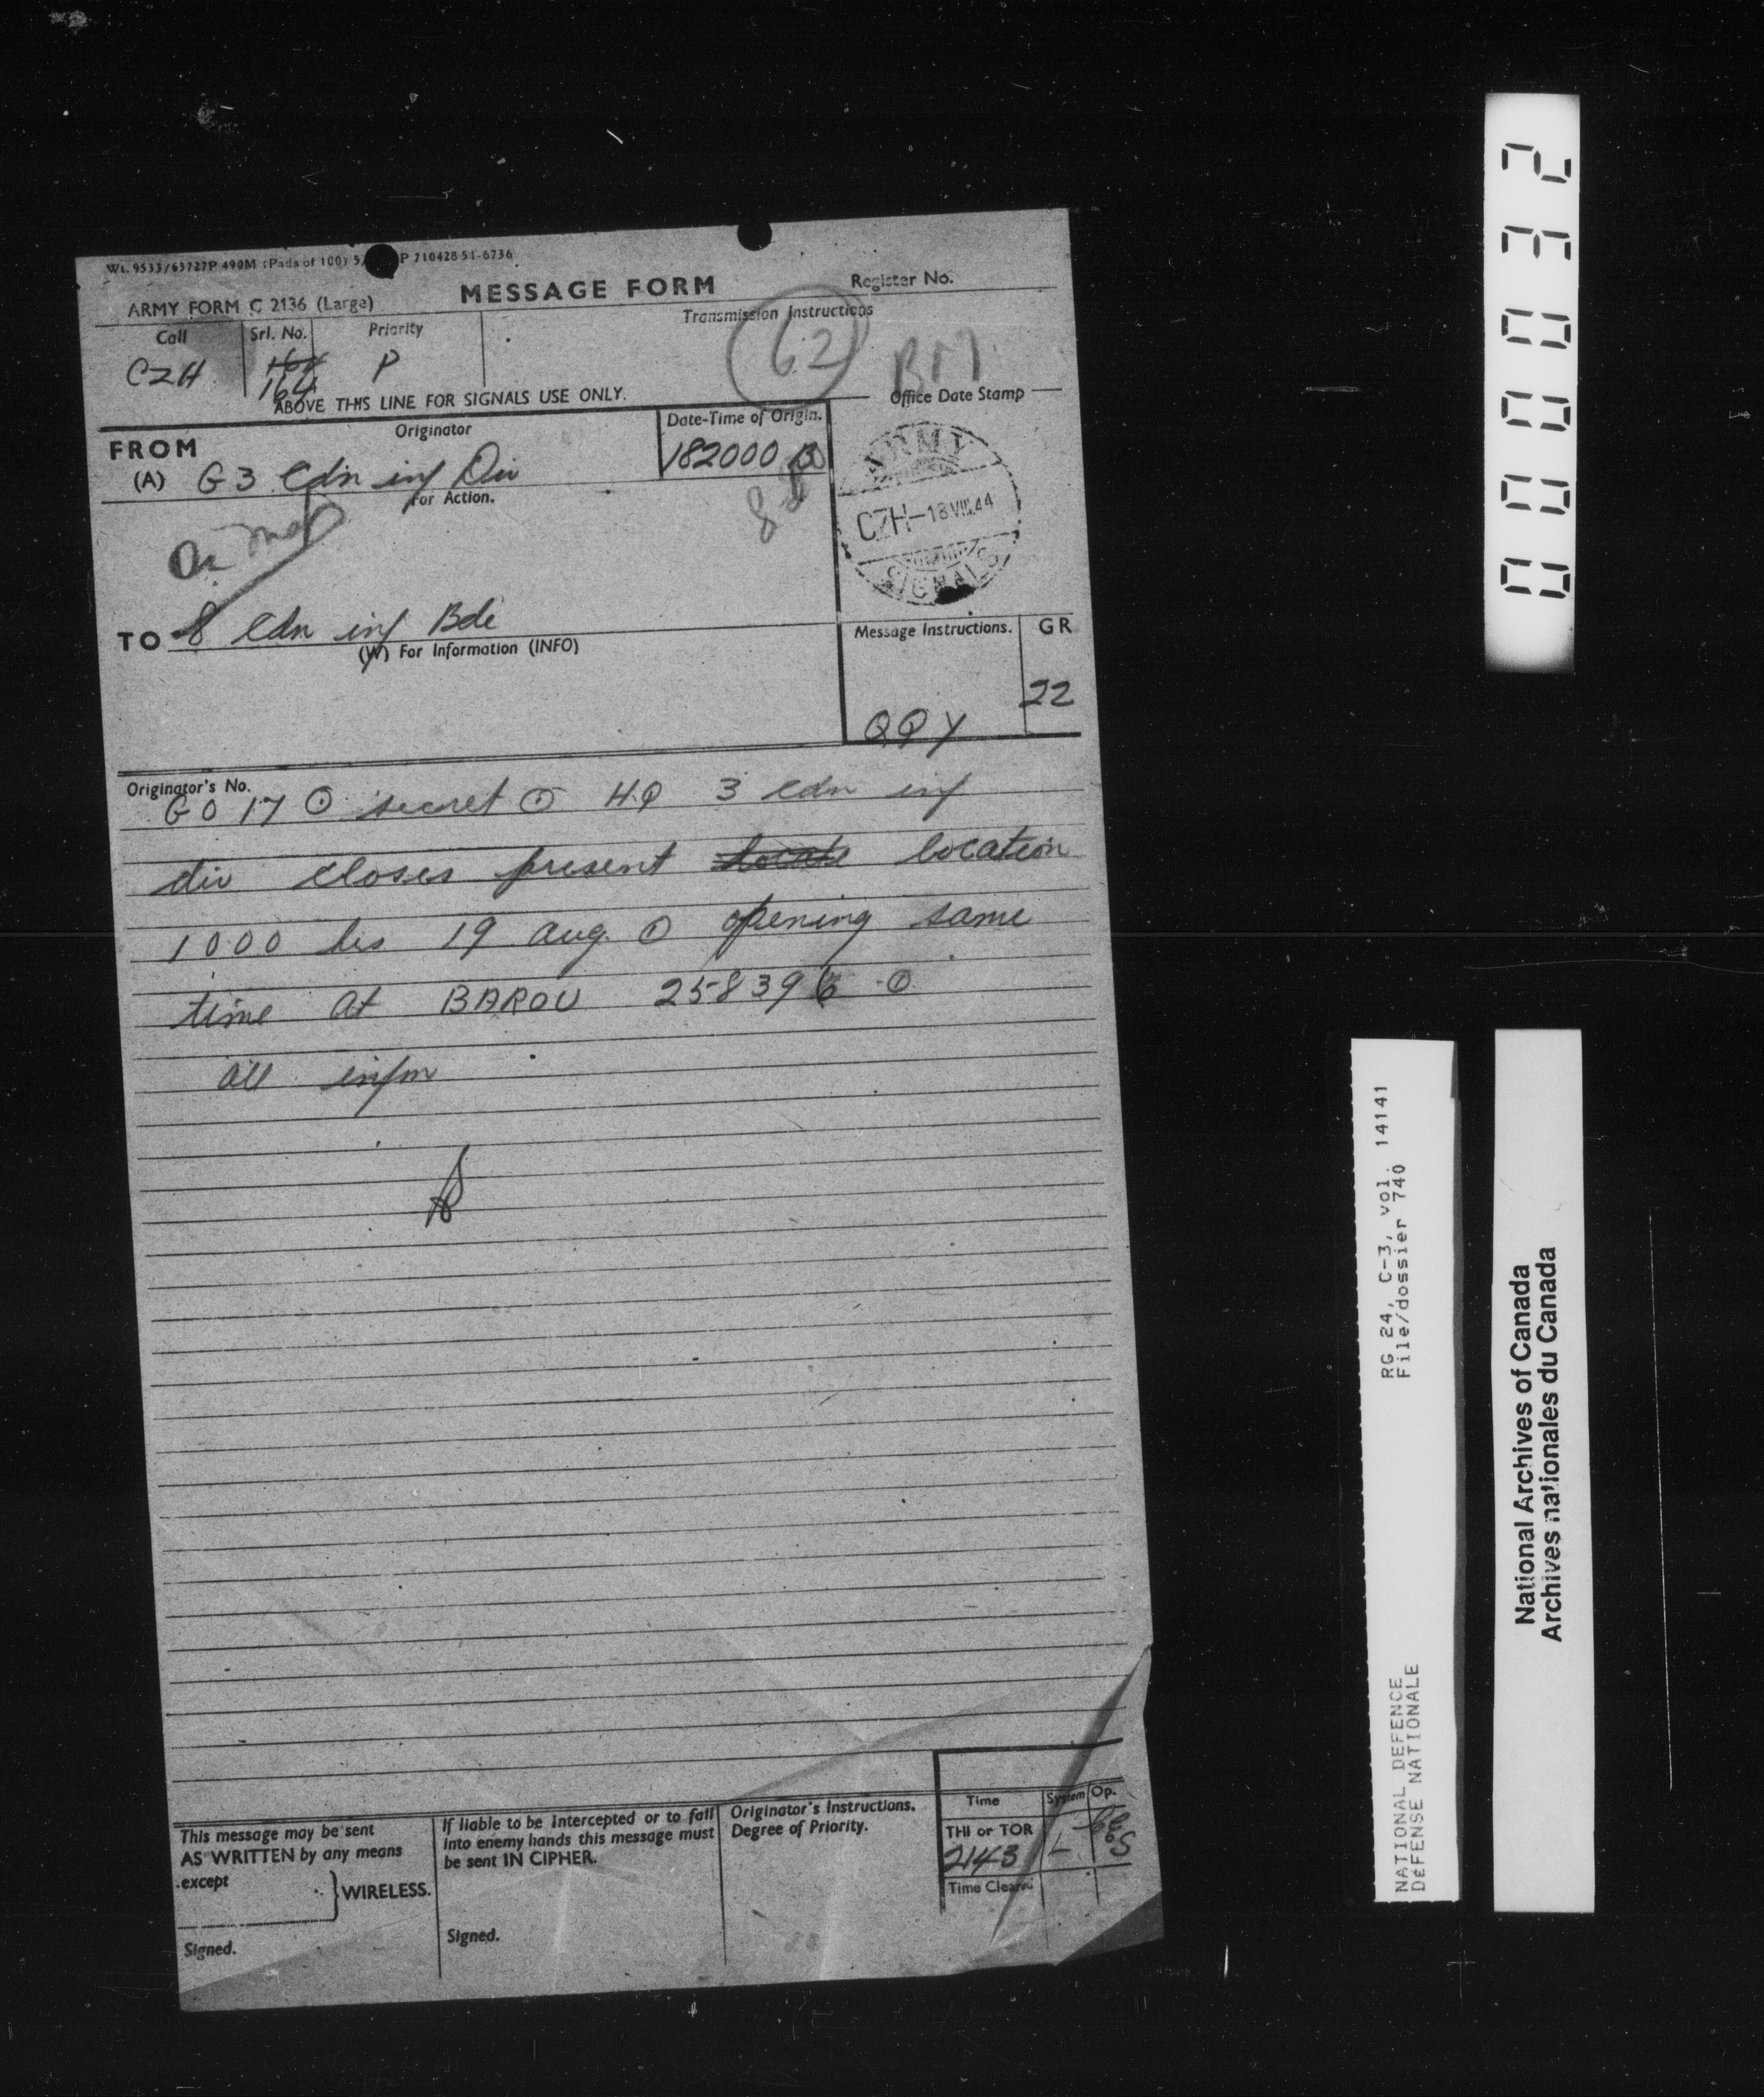 Wt. 9533/63727P 490M (Pads of 100) 5/ P 710428 51-6736
ARMY FORM C 2136 (Large)
MESSAGE FORM
Register No.
Call
Srl. No.
Priority
Transmission Instructions
62
BM
CZH
164
P
ABOVE THIS LINE FOR SIGNALS USE ONLY.
Office Date Stamp
FROM
Originator
Date-Time of Origin.
(A) G 3 Cdn inf Div
182000 B
For Action.
On map
ARMY
CZH-18 VIII.44
SIGNALS
TO 8 Cdn inf Bde
(W) For Information (INFO)
Message Instructions.
GR
QQY
22
Originator's No.
GO 17 ⊙ secret ⊙ HQ 3 cdn inf
div closes present locate location
1000 hrs 19 aug. ⊙ opening same
time at BAROU 258396 ⊙
all infm
This message may be sent
AS WRITTEN by any means
except
WIRELESS.
Signed.
If liable to be intercepted or to fall
into enemy hands this message must
be sent IN CIPHER.
Signed.
Originator's Instructions.
Degree of Priority.
Time
System
Op.
THI or TOR
2143
L
Time Cleared
00032
RG 24, C-3, vol. 14141
File/dossier 740
NATIONAL DEFENCE
DÉFENSE NATIONALE
National Archives of Canada
Archives nationales du Canada